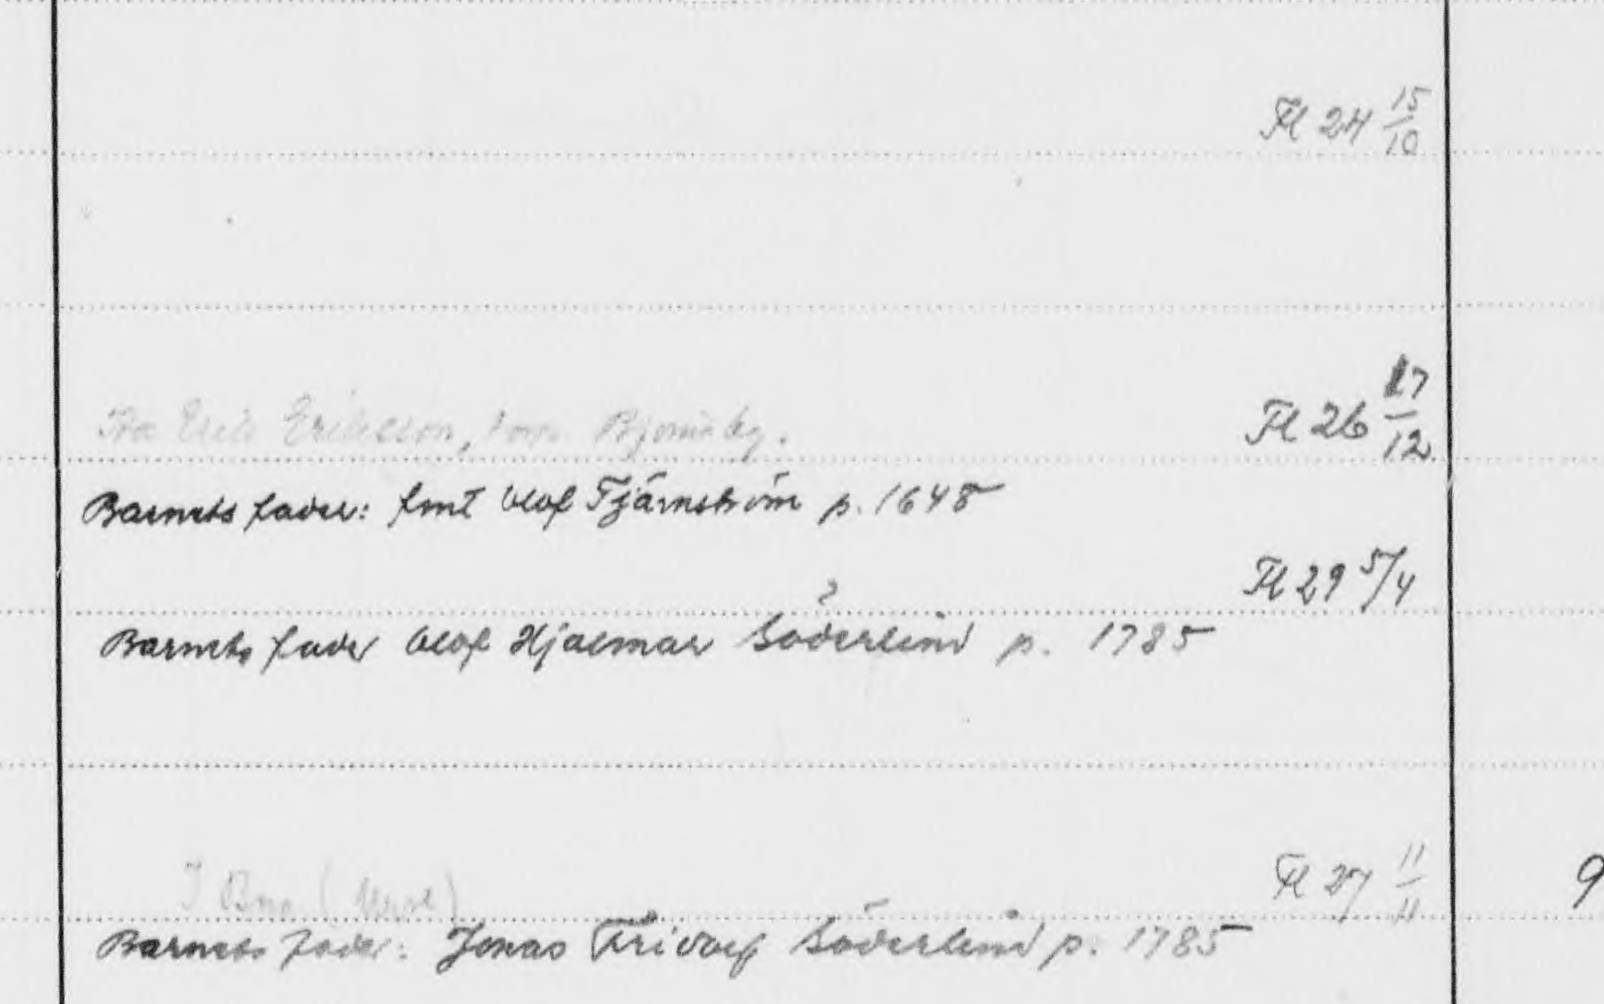 Fl 24 15/10
Eriksson,
Fl 26 17/12
Barnets fader: Olof Tjärnström p. 1648
Fl 29 5/4
Barnets fader Olof Hjalmar Söderlind p. 1785
Fl 27 11/11
9
Barnets fader: Jonas Fridolf Söderlind p. 1785